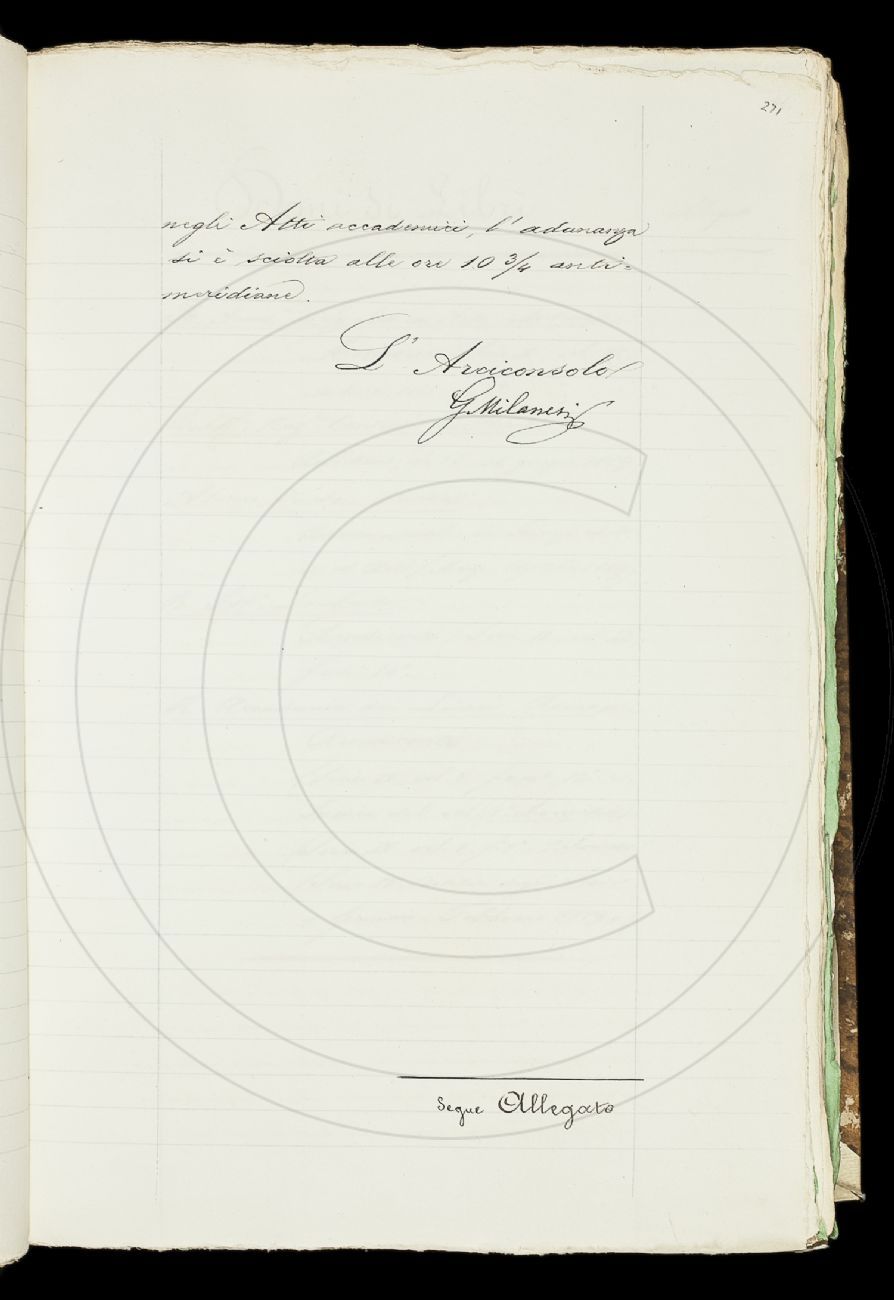 271
negli Atti accademici, l'adunanza
si è sciolta alle ore 10 3/4 anti=
meridiane.
L'Arciconsolo
GMilanesi
Segue Allegato